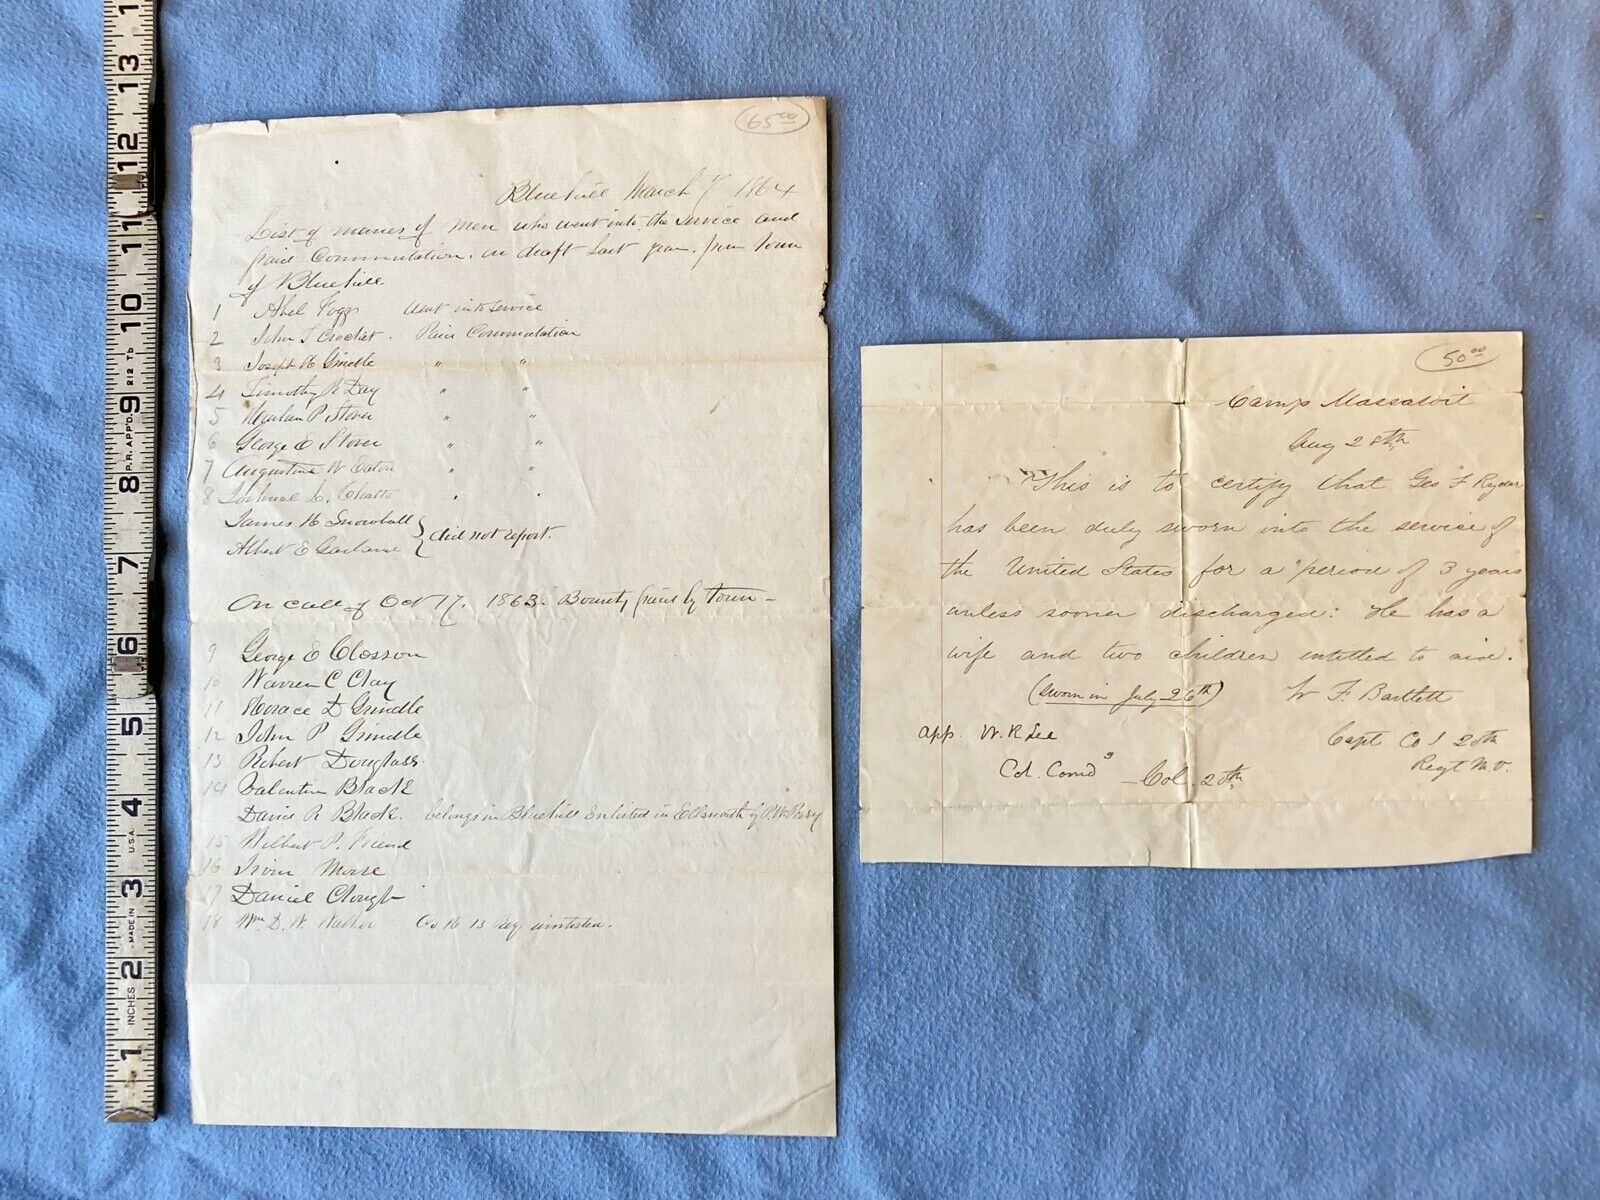 65 00
Bluehill March 7 1864
List of names of men who went into the service and
paid Commutation on draft Last year from town
of Bluehill
1 Abel Fogg went into service
2 John S Crocket. Paid Commutation
3 Joseph H Grindle " "
4 Timothy R Day " "
5 P Stover " "
6 George E Stover " "
7 Augustine W Eaton " "
8 L. Chatto " "
James H Snowball
did not report.
Albert E Garland
On call of Oct 17. 1863. Bounty paid by town -
9 George E Closson
10 Warren C Clay
11 Horace D Grindle
12 John P Grindle
13 Robert Douglass.
14 Valentine Black
Daniel R Black. belongs in Bluehill Enlisted in Ellsworth by P. W. Perry
15 Wilbert P. Friend
16 Morse
17 Daniel Clough
18 Wm D. W. Walker Co H 13 Reg
50 00
Camp Massasoit
Aug 28th
This is to certify that Geo F Ryder
has been duly sworn into the service of
the United States for a period of 3 years
unless sooner discharged: He has a
wife and two children entitled to aid.
(sworn in July 26th) W F. Bartlett
app. W. R Lee Capt Co I 20th
Regt M. V.
Col. Comd g - Col. 20th
1 2 3 4 5 6 7 8 9 10 11 12 13 1
INCHES MADE IN U.S.A. P.R. APP'D. 212 TD